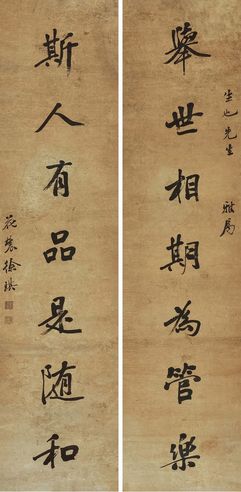 舉世相期為管樂
斯人有品是随和
先生
雅屬
花農徐琪